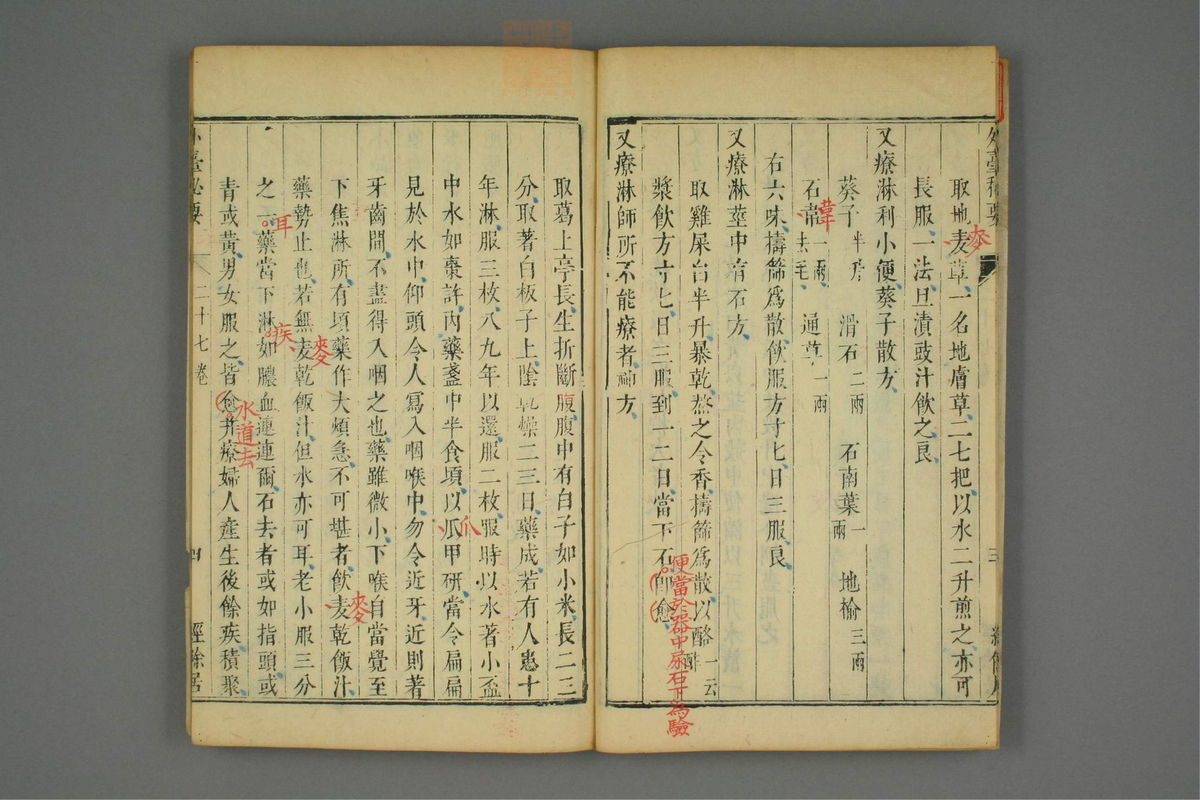 取地麦草一名地膚草二七把以水二升煎之亦可
麥
長服一法旦漬豉汁飲之良
又療淋利小便葵子散方
葵子半升 滑石二兩 石南葉一兩 地榆三兩
石帝一兩去毛 通草一兩
韋
右六味擣篩爲散飲服方寸匕日三服良
又療淋莖中有石方
取雞屎白半升暴乾熬之令香擣篩爲散以酪一云酢
漿飲方寸匕日三服到一二日當下石即愈
便當於器中尿石下爲驗
又療淋師所不能療者神方
取葛上亭長生折斷腹腹中有白子如小米長二三
分取著白板子上陰乾燥二三日藥成若有人患十
年淋服三枚八九年以還服二枚服時以水著小盃
中水如棗許內藥盞中半食頃以爪甲研當令扁扁
爪
見於水中仰頭令人寫入咽喉中勿令近牙近則著
牙齒間不盡得入咽之也藥雖微小下喉自當覺至
下焦淋所有頃藥作大煩急不可堪者飲麦乾飯汁
麥
藥勢止也若無麦乾飯汁但水亦可耳老小服三分
麥
之一藥當下淋如膿血連連爾石去者或如指頭或
耳
疾
青或黃男女服之皆愈并療婦人產生後餘疾積聚
水道去
外臺秘要
二十七卷
四
經餘居